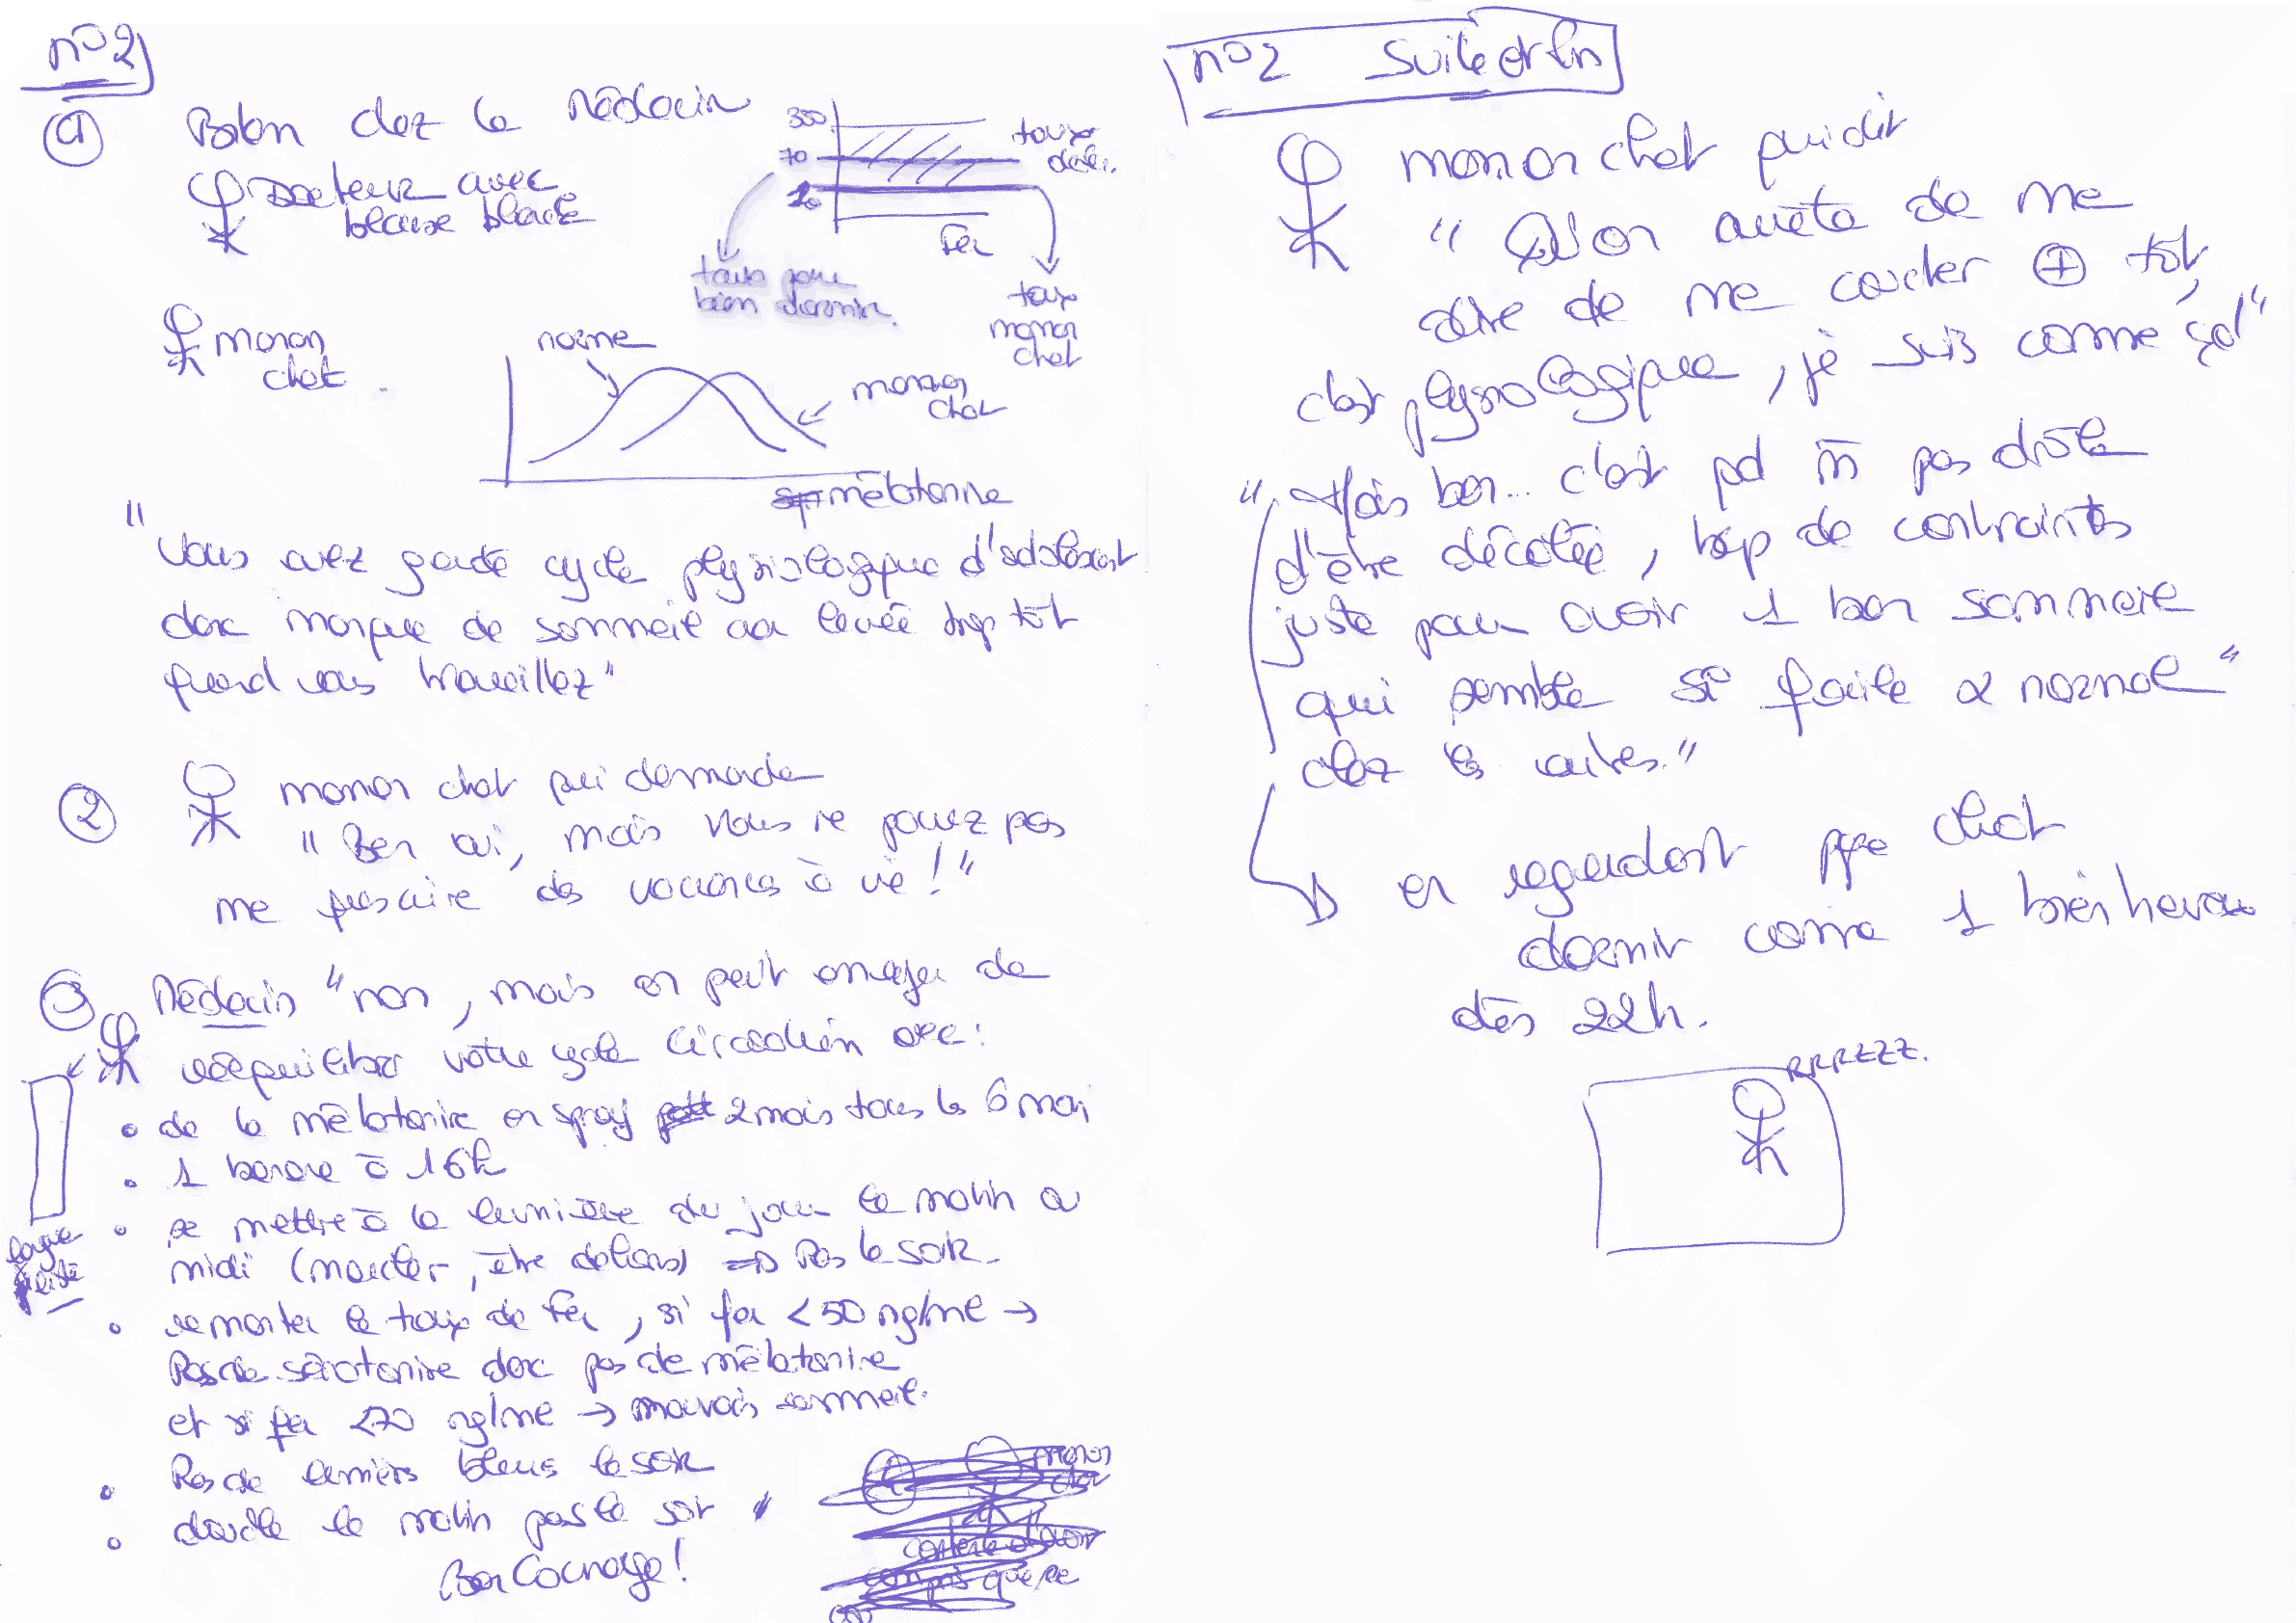 n°2
① Bilan chez le Médecin
Docteur avec
blouse blanche
maman
chat
300
70
20
taux
Fer
taux pour
bien dormir.
taux
maman
chat
norme
maman
chat
mélatonine
"Vous avez gardé cycle physiologique d'adolescent
donc manque de sommeil car levée trop tôt
quand vous travaillez"
② maman chat qui demande
"Ben oui, mais vous ne pouvez pas
me prescrire des vacances à vie !"
③ Médecin "non, mais on peut essayer de
rééquilibrer votre cycle circadien avec :
longue
liste
• de la mélatonine en spray 2 mois tous les 6 mois
• 1 banane à 16h
• se mettre à la lumière du jour le matin ou
midi (marcher, être dehors) ⇒ Pas le soir
• remonter le taux de Fer, si fer < 50 ng/ml →
Pas de sérotonine donc pas de mélatonine
et si fer < 70 ng/ml → mauvais sommeil.
• Pas de lumières bleues le soir
• douche le matin pas le soir"
Bon Courage !
maman
chat
n°2 Suite et fin
maman chat qui dit
"Qu'on arrête de me
dire de me coucher ⊕ tôt,
c'est physiologique, je suis comme ça !"
"Mais bon... c'est qd m̄ pas drôle
d'être décalée, trop de contraintes
juste pour avoir 1 bon sommeil
qui semble si facile & normal"
chez les autres."
en regardant papa chat
dormir comme 1 bienheureux
dès 22h.
RRRZZZ.